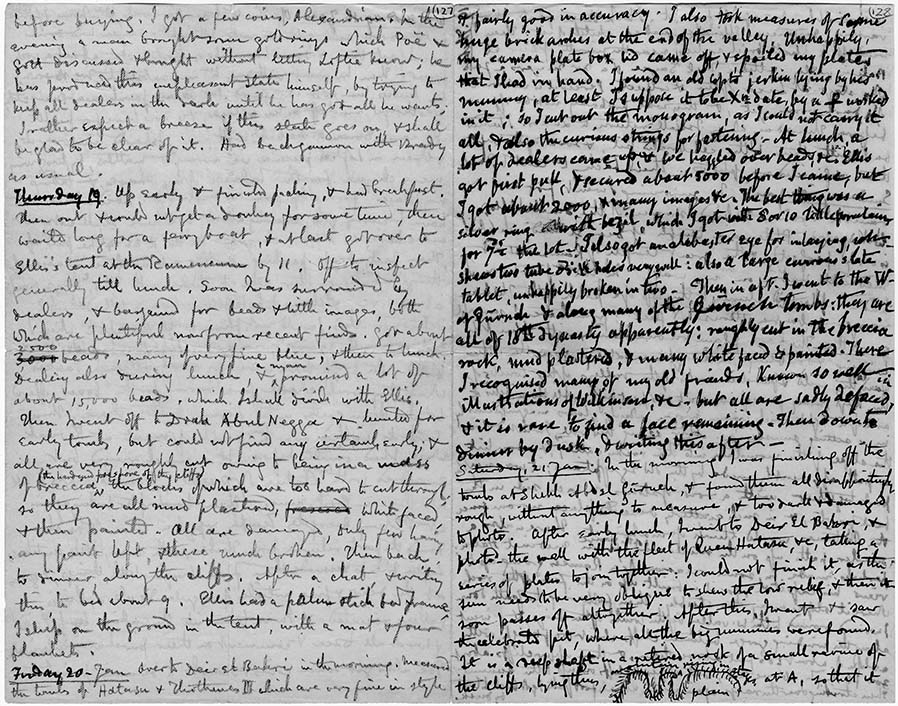 127
before buying. I got a few coins, Alexandrian. In the
evening a man brought some gold rings which Poe &
Grett discussed & bought without letting Loftie know, he
has produced this unpleasant state himself, by trying to
keep all dealers in the dark until he has got all he wants.
I rather expect a breeze if this state goes on, & shall
be glad to be clear of it. Had backgammon with Brady
as usual.
Thursday 19. Up early & finished packing, & had breakfast.
Then out & could not get a donkey for some time, then
waited long for a ferry boat, & at last got over to
Ellis's tent at the Ramesseum by 11. Off to inspect
generally till lunch. Soon I was surrounded by
dealers, & bargained for beads & little images, both
which are plentiful now from recent finds. Got about
2500
3000 beads, many of very fine blue, & then to lunch.
Dealing also during lunch, & a man promised a lot of
about 15000 beads, which I shall divide with Ellis.
Then I went off to Drah Abul Negga & hunted for
early tombs, but could not find any certainly early, &
all are very roughly cut owing to being in a mass
of breccia, the blocks of which are too hard to cut through,
so they are all mud plastered, white faced
& then painted. All are damaged, only few having
any paint left, & these much broken. Then back
to dinner along the cliffs. After a chat & writing
this to bed about 9. Ellis had a palm stick bed frame,
I sleep on the ground in the tent, with a mat & four
blankets.
Friday 20 - Jan over to Deir el Bahri in the morning. Measured
the tombs of Hatasu & Thothmes III which are very fine in style
128
& fairly good in accuracy. I also took measures of some
huge brick arches at the end of the valley. Unhappily,
my camera plate box lid came off & spoiled my plates
that I had in hand. I found an old Copt's jerkin lying by his
mummy, at least I suppose it to be Xn date, by a worked
in it; so I cut out the monogram, as I could not carry it
all, & also the curious strings for fastening. At lunch a
lot of dealers came up, & we haggled over beads &c. Ellis
got first pull, & secured about 5000 before I came, but
I got about 2000, & many images &c. The best thing was a
silver ring with bezil, which I got with 8 or 10 little
for 7/- the lot. I also got an alabaster eye for inlaying, which
shews two tube drill holes very well: also a large curious slate
tablet, unhappily broken in two. Then in aft. I went to the W.
of Gurneh & along many of the Gurneh tombs: they are
all of 18th dynasty apparently: roughly cut in the breccia
rock, mud plastered, & many white faced & painted. There
I recognised many of my old friends, known so well in
illustrations of Wilkinson, &c - but all are sadly defaced,
& it is rare to find a face remaining. Then down to
dinner by dusk, & writing this after —
Saturday, 21. Jan. In the morning I was finishing off the
tombs at Shekh Abdel Gurneh, & found them all disappointingly
rough, without anything to measure, & too dark & damaged
to photo. After early lunch, I went to Deir El Bahri, &
photo-ed the wall with the fleet of Queen Hatasu, &c, taking a
series of plates to join together: I could not finish it, as the
sun needs to be very oblique to shew the low relief, & then the
sun passes off altogether. After this, I went & saw
the celebrated pit, where all the big mummies were found.
It is a deep shaft in a natural nook of a small ravine of
the cliffs, lying thus, at A, so that it
plain